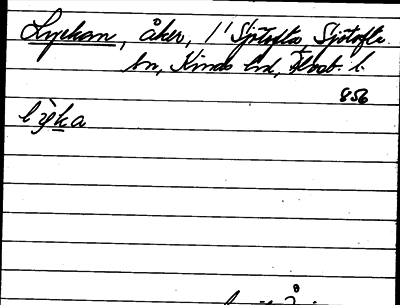 Lyckan, åker, 1/1 Sjötofta, Sjötofta
sn, Kinds hd, Älvsb. l.
856
lỳka